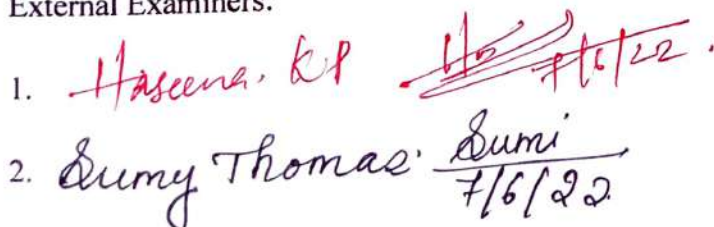 External Examiners:
1. Haseena. KP 7/6/22.
2. Sumy Thomas. Sumi
7/6/22